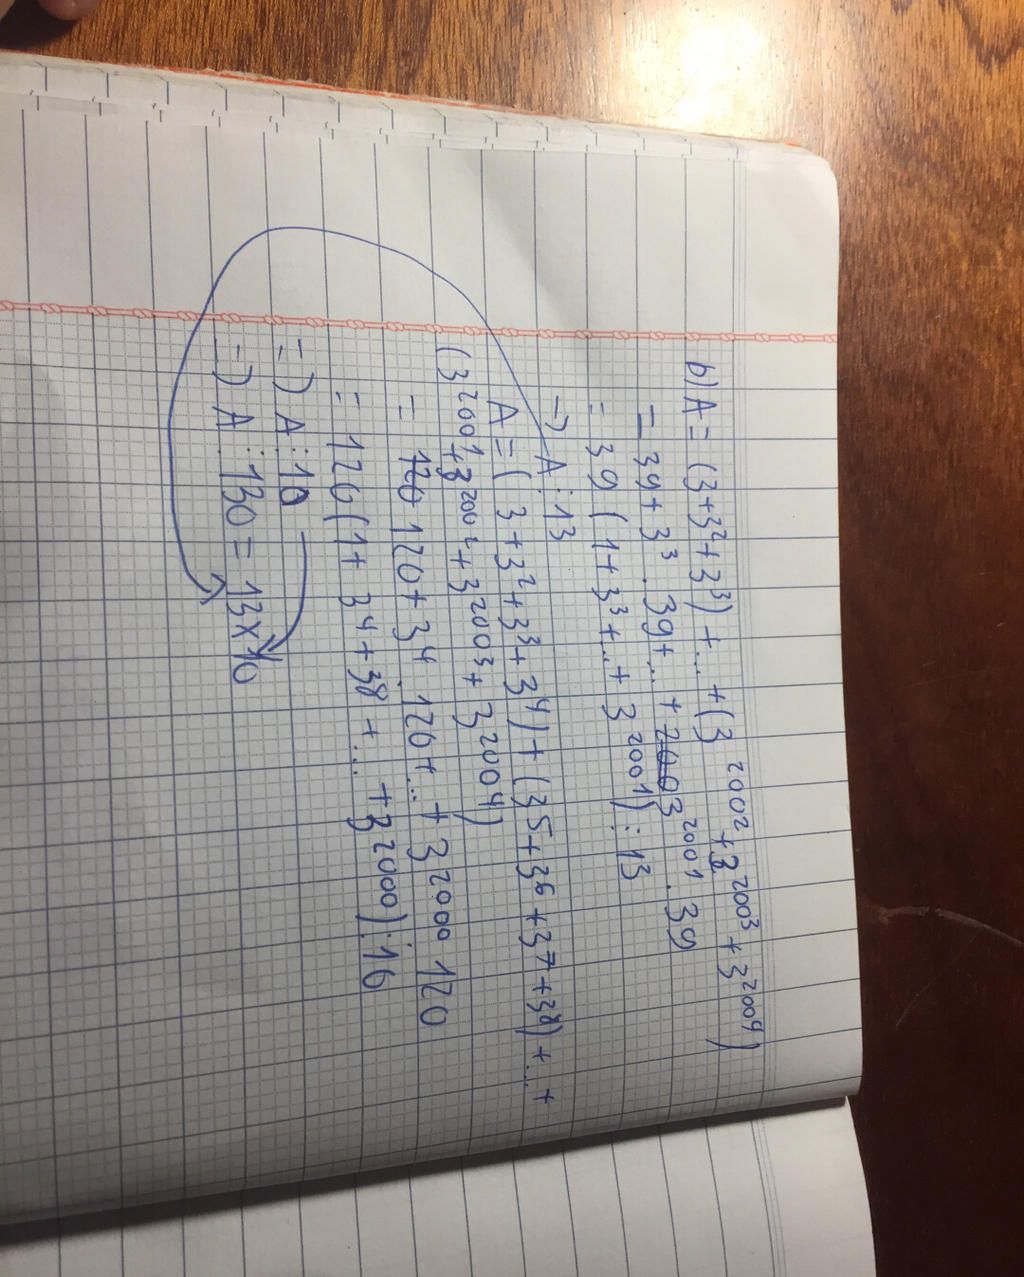 b) A = (3+3²+3³) + ... + (3²⁰⁰² + 3²⁰⁰³ + 3²⁰⁰⁴)
= 39 + 3³ . 39 + ... + 3²⁰⁰¹ . 39
= 39 (1 + 3³ + ... + 3²⁰⁰¹) ⋮ 13
=) A ⋮ 13
A = (3 + 3² + 3³ + 3⁴) + (3⁵ + 3⁶ + 3⁷ + 3⁸) + ... +
(3²⁰⁰¹ + 3²⁰⁰² + 3²⁰⁰³ + 3²⁰⁰⁴)
= 120 + 3⁴ . 120 + ... + 3²⁰⁰⁰ 120
= 120 (1 + 3⁴ + 3⁸ + ... + 3²⁰⁰⁰) ⋮ 10
=) A ⋮ 10
=) A ⋮ 130 = 13 x 10